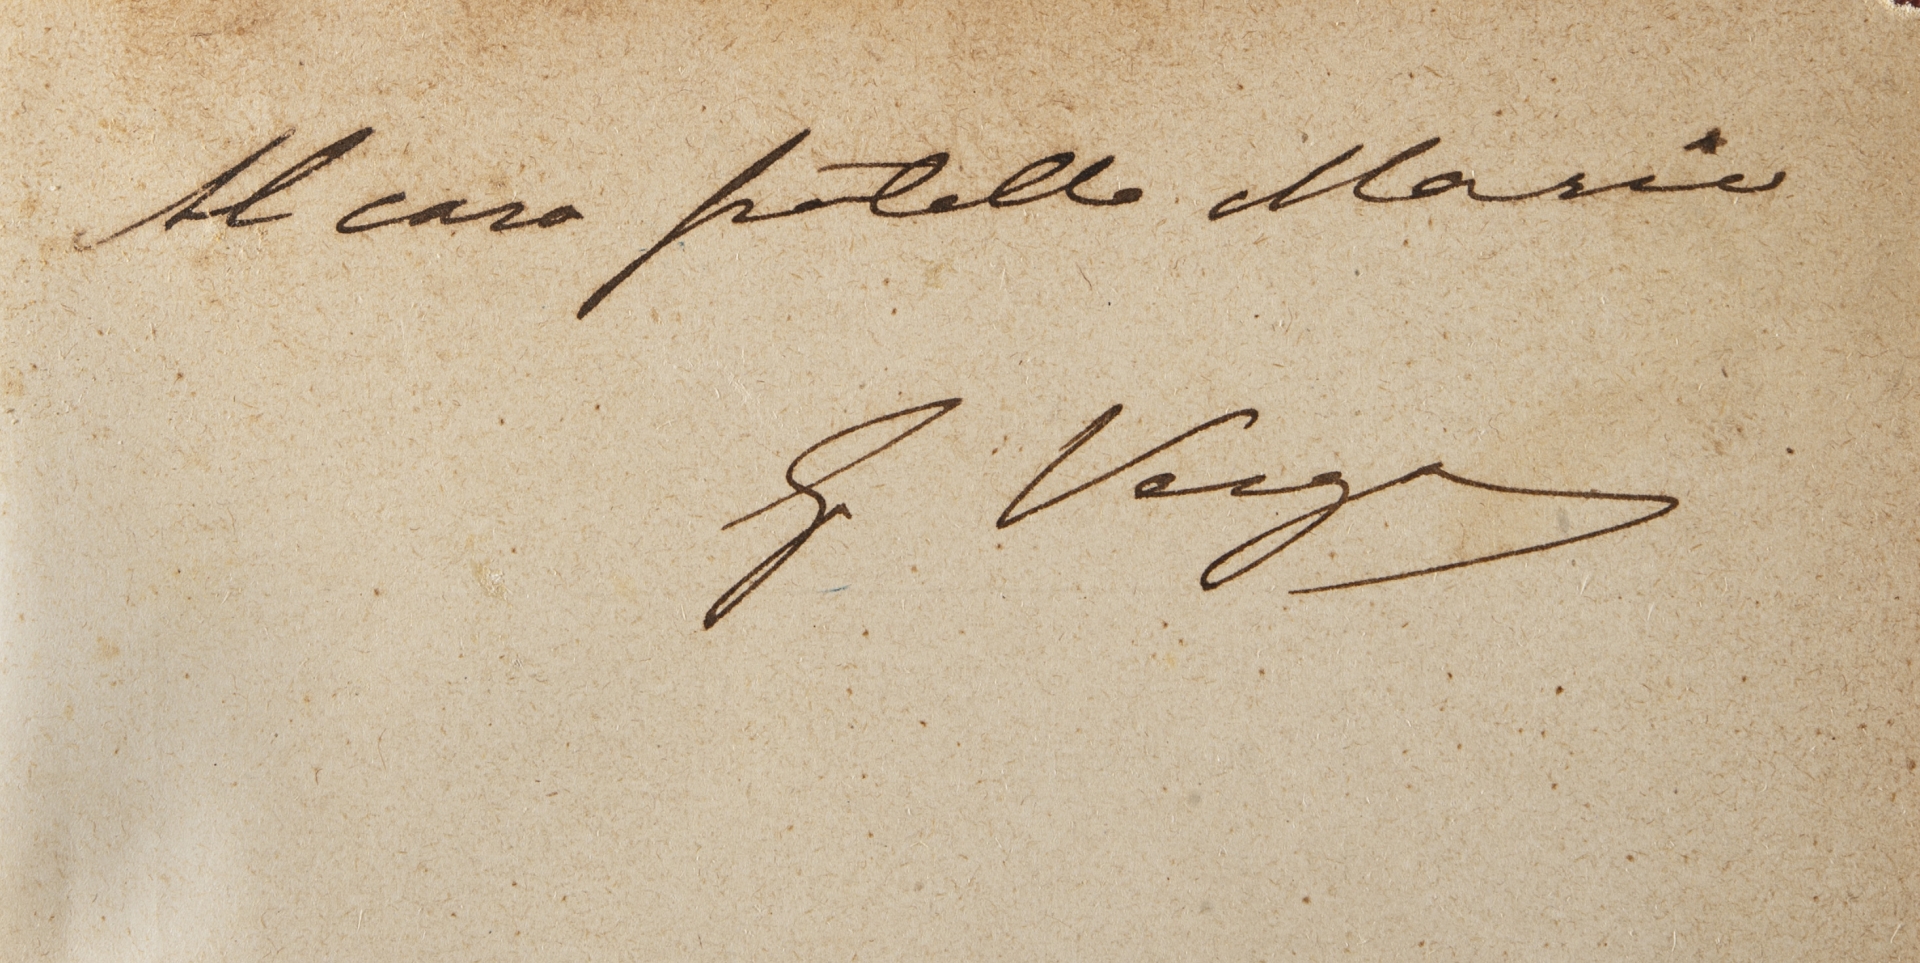 Al caro fratello Mario
G Verga